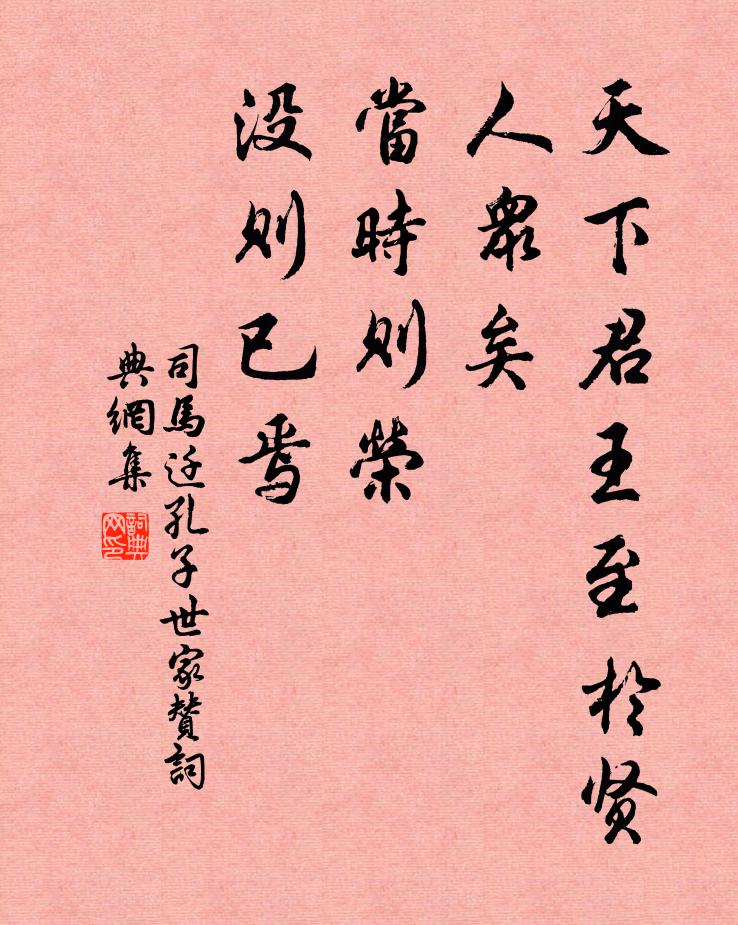 天下君王至於贤
人眾矣
當時則榮
没則已焉
司馬迁孔子世家赞詞
典網集
詞典網印